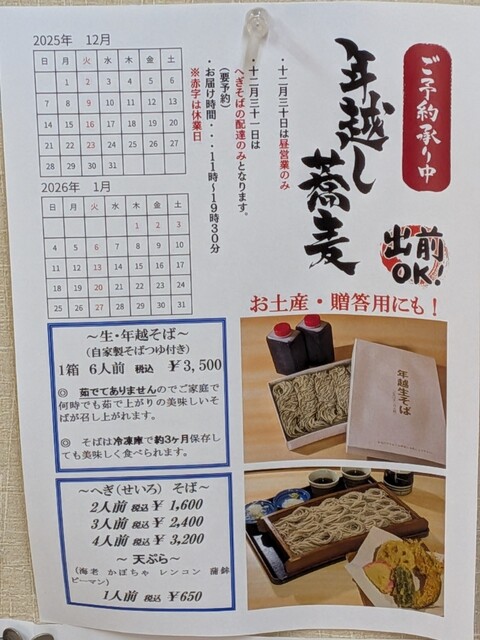 ご予約承り中
年越し蕎麦
出前
OK!
・十二月三十日は昼営業のみ
・十二月三十一日は
へぎそばの配達のみとなります。
(要予約)
・お届け時間・・・11時～19時30分
※赤字は休業日
2025年 12月
日 月 火 水 木 金 土
1 2 3 4 5 6
7 8 9 10 11 12 13
14 15 16 17 18 19 20
21 22 23 24 25 26 27
28 29 30 31
2026年 1月
日 月 火 水 木 金 土
1 2 3
4 5 6 7 8 9 10
11 12 13 14 15 16 17
18 19 20 21 22 23 24
25 26 27 28 29 30 31
お土産・贈答用にも！
～生・年越そば～
(自家製そばつゆ付き)
1箱 6人前 税込 ￥3,500
◎ 茹でてありませんのでご家庭で
何時でも茹で上がりの美味しいそ
ばが召し上がれます。
◎ そばは冷凍庫で約3ヶ月保存し
ても美味しく食べられます。
年越生そば
～へぎ(せいろ) そば～
2人前 税込 ￥1,600
3人前 税込 ￥2,400
4人前 税込 ￥3,200
～ 天ぷら～
(海老 かぼちゃ レンコン 蒲鉾
ピーマン)
1人前 税込 ￥650